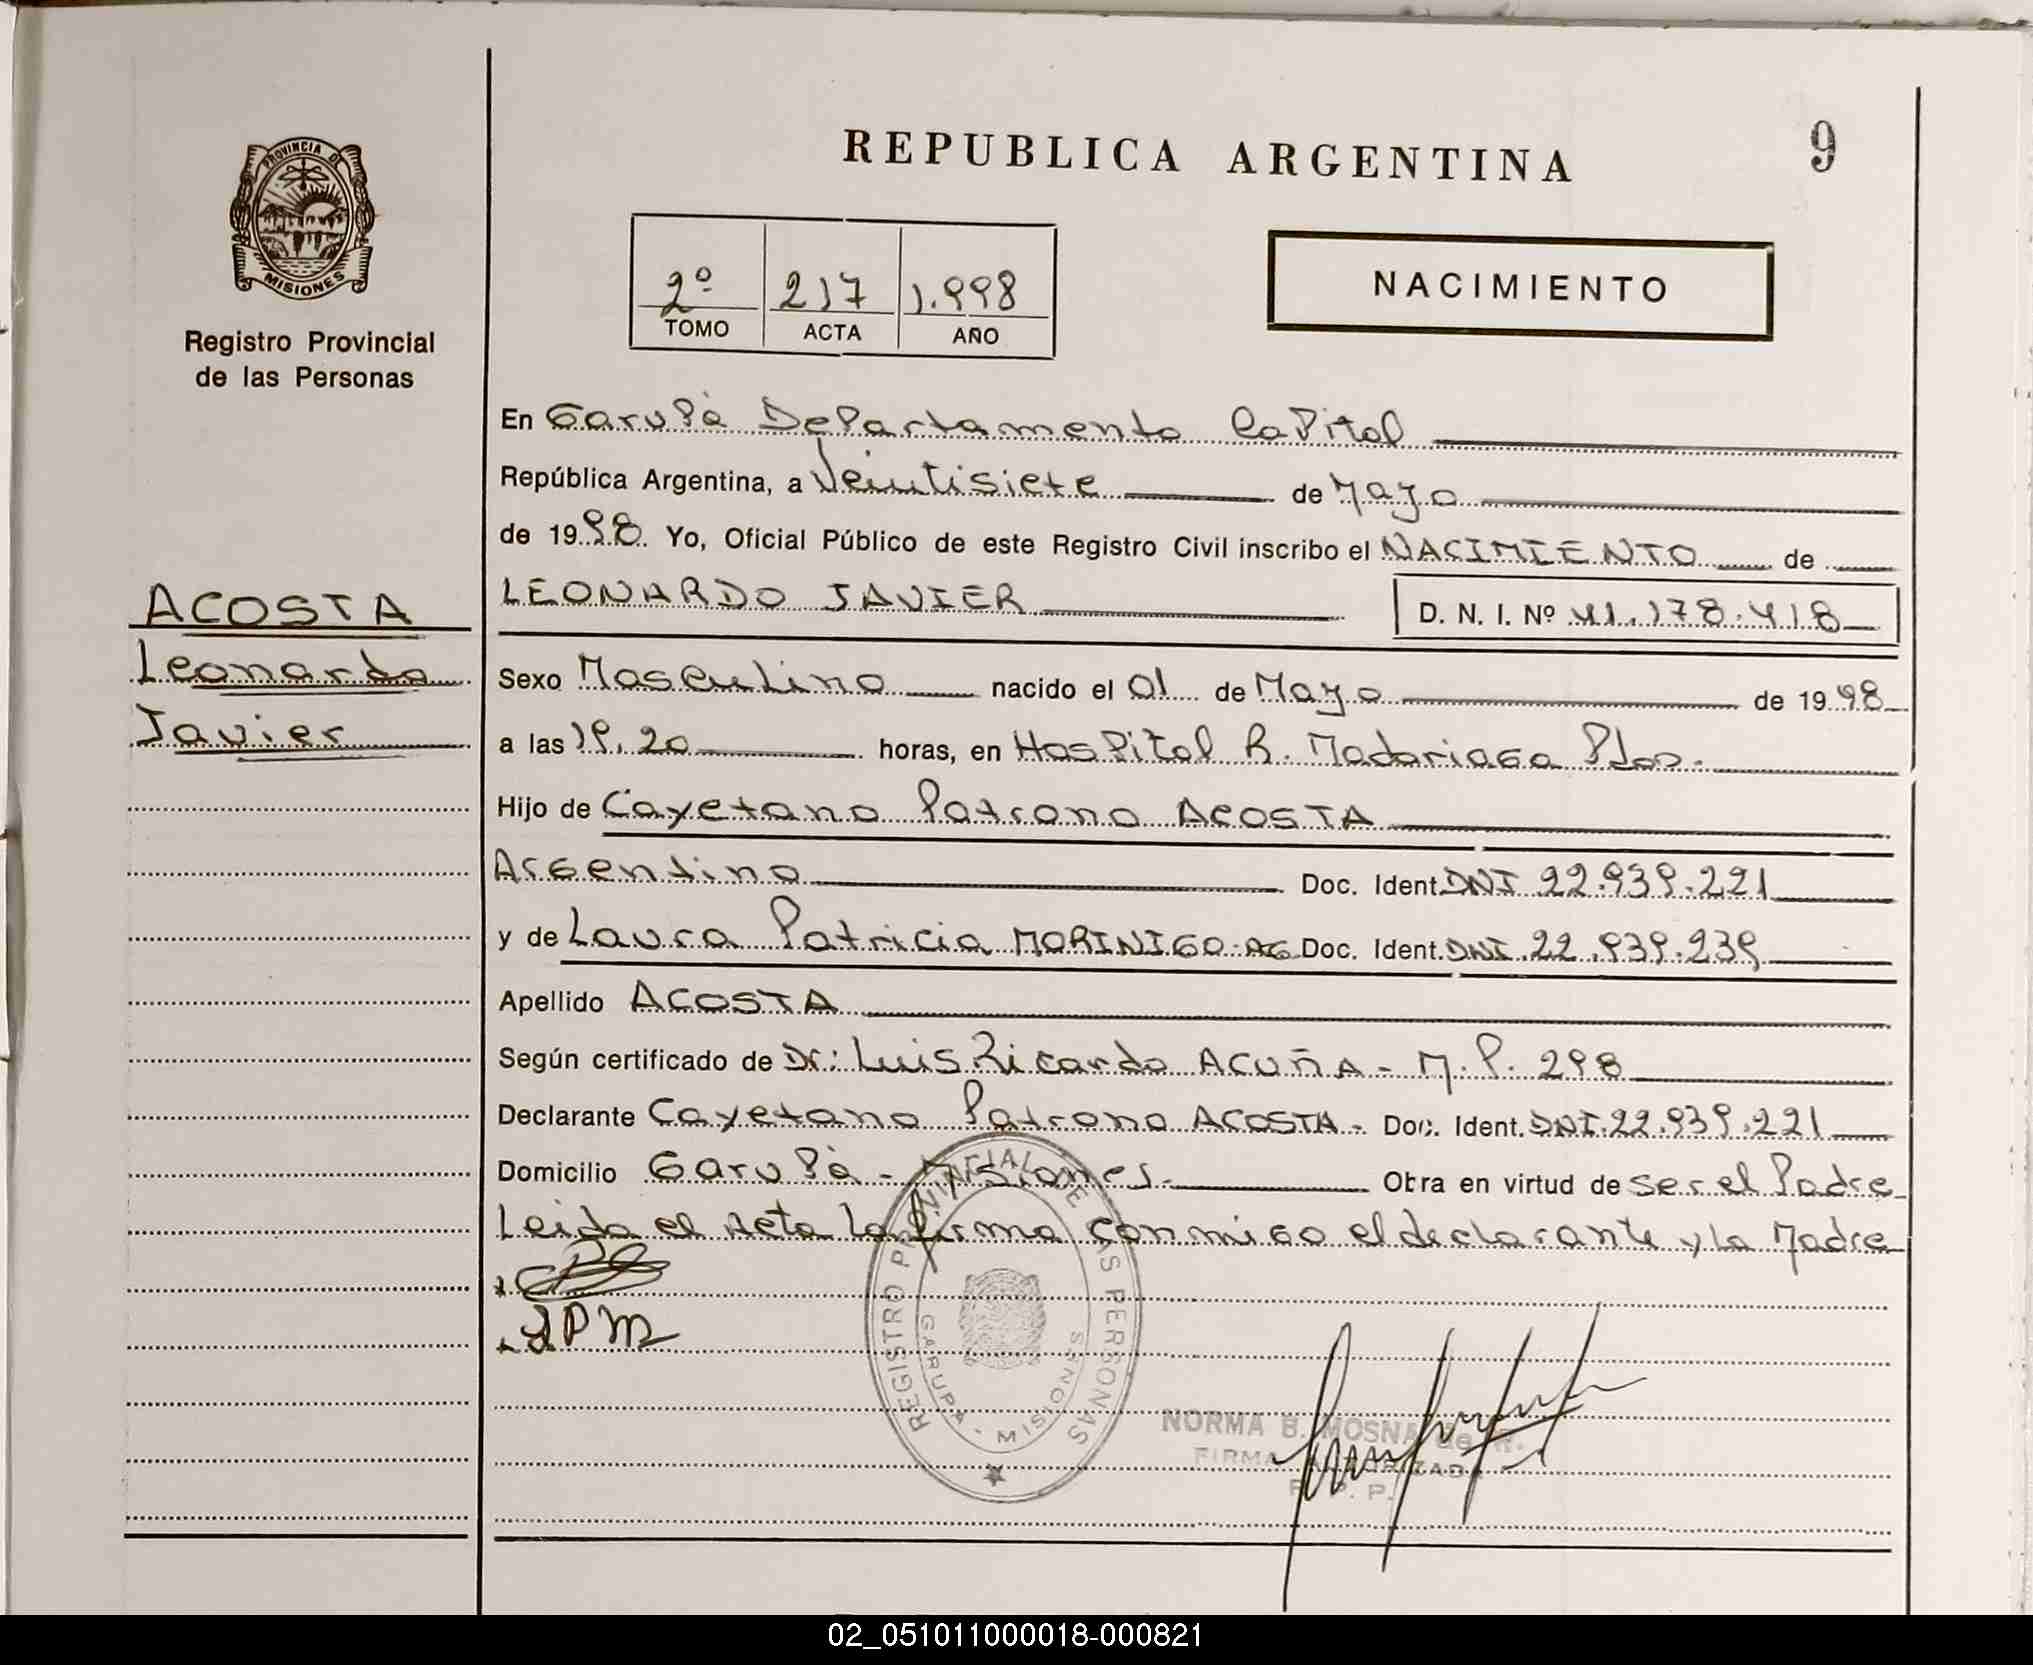 REPUBLICA ARGENTINA
9
PROVINCIA DE
MISIONES
Registro Provincial
de las Personas
2º 217 1.998
TOMO ACTA AÑO
NACIMIENTO
En Garupá Departamento Capital
República Argentina, a Veintisiete de Mayo
de 1998. Yo, Oficial Público de este Registro Civil inscribo el NACIMIENTO de
LEONARDO JAVIER D. N. I. Nº 41.178.418
ACOSTA
Leonardo
Javier
Sexo Masculino nacido el 01 de Mayo de 1998
a las 19.20 horas, en Hospital R. Madariaga Pdas.
Hijo de Cayetano Patrono ACOSTA
Argentino Doc. Ident. DNI 22.939.221
y de Laura Patricia MORINIGO-AG Doc. Ident. DNI.22.939.239
Apellido ACOSTA
Según certificado de Dr: Luis Ricardo ACUÑA - M.P. 298
Declarante Cayetano Patrono ACOSTA - Doc. Ident. DNI.22.939.221
Domicilio Garupá - Misiones. Obra en virtud de ser el Padre
Leida el Acta la firma conmigo el declarante y la Madre
LPM
REGISTRO PROVINCIAL DE LAS PERSONAS
GARUPA - MISIONES
NORMA B. MOSNA de R.
FIRMA AUTORIZADA
R. P. P.
02_051011000018-000821